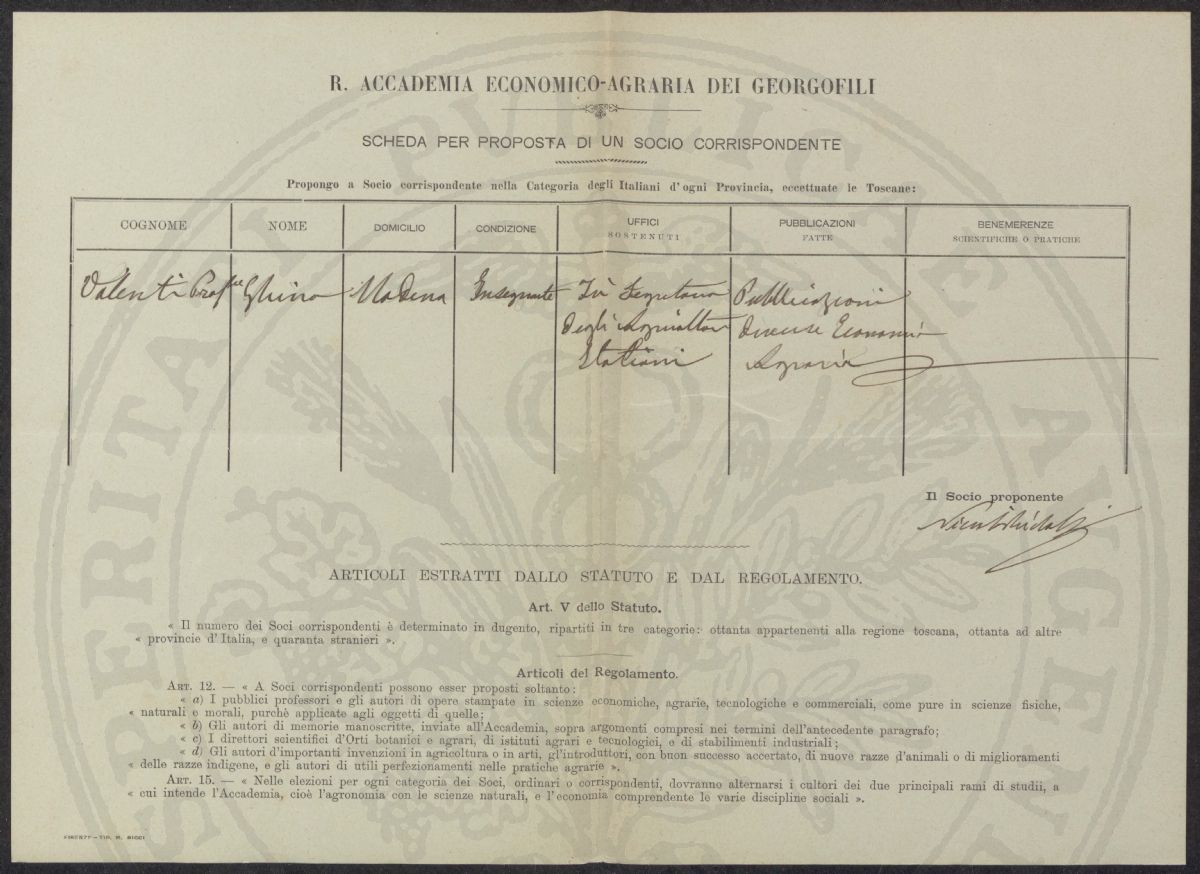 R. ACCADEMIA ECONOMICO-AGRARIA DEI GEORGOFILI
SCHEDA PER PROPOSTA DI UN SOCIO CORRISPONDENTE
Propongo a Socio corrispondente nella Categoria degli Italiani d'ogni Provincia, eccettuate le Toscane:
COGNOME NOME DOMICILIO CONDIZIONE UFFICI SOSTENUTI PUBBLICAZIONI FATTE BENEMERENZE SCIENTIFICHE O PRATICHE
Valenti Prof Ghino Modena Insegnante Segretario Pubblicazioni
degli Agricoltori diverse Economia
Italiani Agraria
Il Socio proponente
ARTICOLI ESTRATTI DALLO STATUTO E DAL REGOLAMENTO.
Art. V dello Statuto.
« Il numero dei Soci corrispondenti è determinato in dugento, ripartiti in tre categorie: ottanta appartenenti alla regione toscana, ottanta ad altre
« provincie d'Italia, e quaranta stranieri ».
Articoli del Regolamento.
ART. 12. — « A Soci corrispondenti possono esser proposti soltanto:
« a) I pubblici professori e gli autori di opere stampate in scienze economiche, agrarie, tecnologiche e commerciali, come pure in scienze fisiche,
« naturali e morali, purchè applicate agli oggetti di quelle;
« b) Gli autori di memorie manoscritte, inviate all'Accademia, sopra argomenti compresi nei termini dell'antecedente paragrafo;
« c) I direttori scientifici d'Orti botanici e agrari, di istituti agrari e tecnologici, e di stabilimenti industriali;
« d) Gli autori d'importanti invenzioni in agricoltura o in arti, gl'introduttori, con buon successo accertato, di nuove razze d'animali o di miglioramenti
« delle razze indigene, e gli autori di utili perfezionamenti nelle pratiche agrarie ».
ART. 15. — « Nelle elezioni per ogni categoria dei Soci, ordinari o corrispondenti, dovranno alternarsi i cultori dei due principali rami di studii, a
« cui intende l'Accademia, cioè l'agronomia con le scienze naturali, e l'economia comprendente le varie discipline sociali ».
FIRENZE—TIP. M. RICCI
PROSPERITATI PUBLICAE AVGENDAE